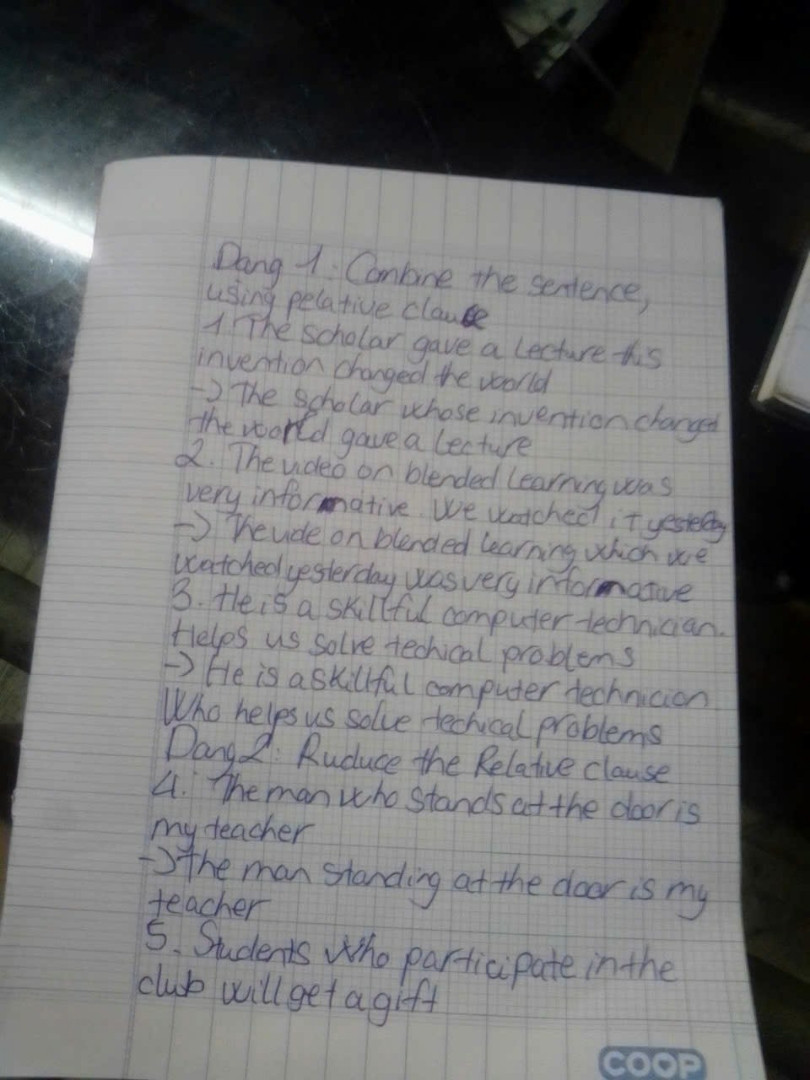 Dang 1: Combine the sentence,
using pelative clause
1. The scholar gave a lecture this
invention changed the world
-> The scholar whose invention changed
the world gave a lecture
2. The video on blended learning was
very informative. We watched it yesterday
-> The vide on blended learning which we
watched yesterday was very informative
3. He is a skillful computer technician.
Helps us solve techical problems
-> He is a skillful computer technician
Who helps us solve techical problems
Dang 2: Ruduce the Relative clause
4. The man who stands at the door is
my teacher
-> The man standing at the door is my
teacher
5. Students who participate in the
club will get a gift
COOP